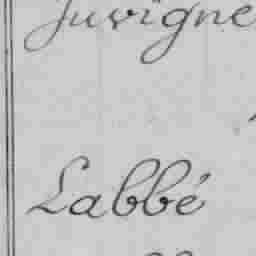 Juvigne
Labbé